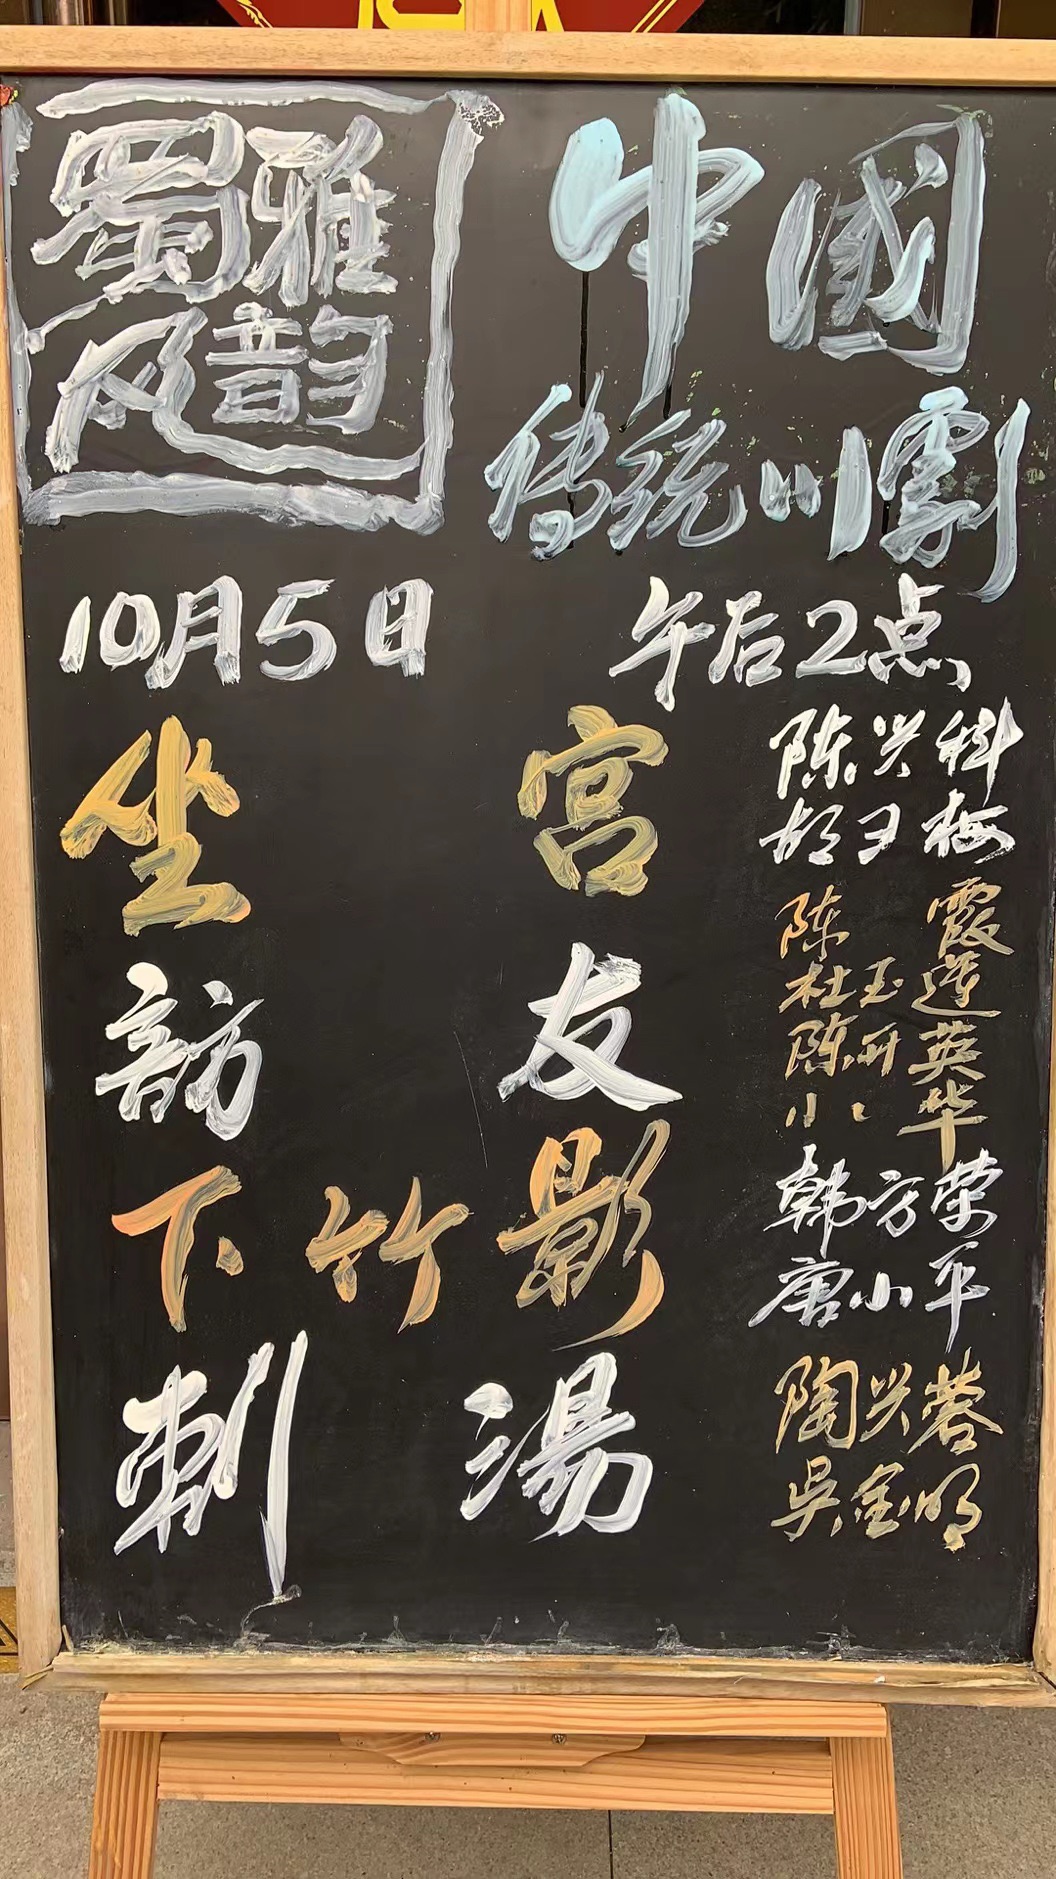 蜀雅
风韵
中國
传统川劇
10月5日 午后2点
坐宫
陈兴科
胡又梅
訪友
陈霞
杜玉莲
陈开英
小小华
下竹影
韩方荣
唐小平
刺湯
陶兴蓉
吴金明